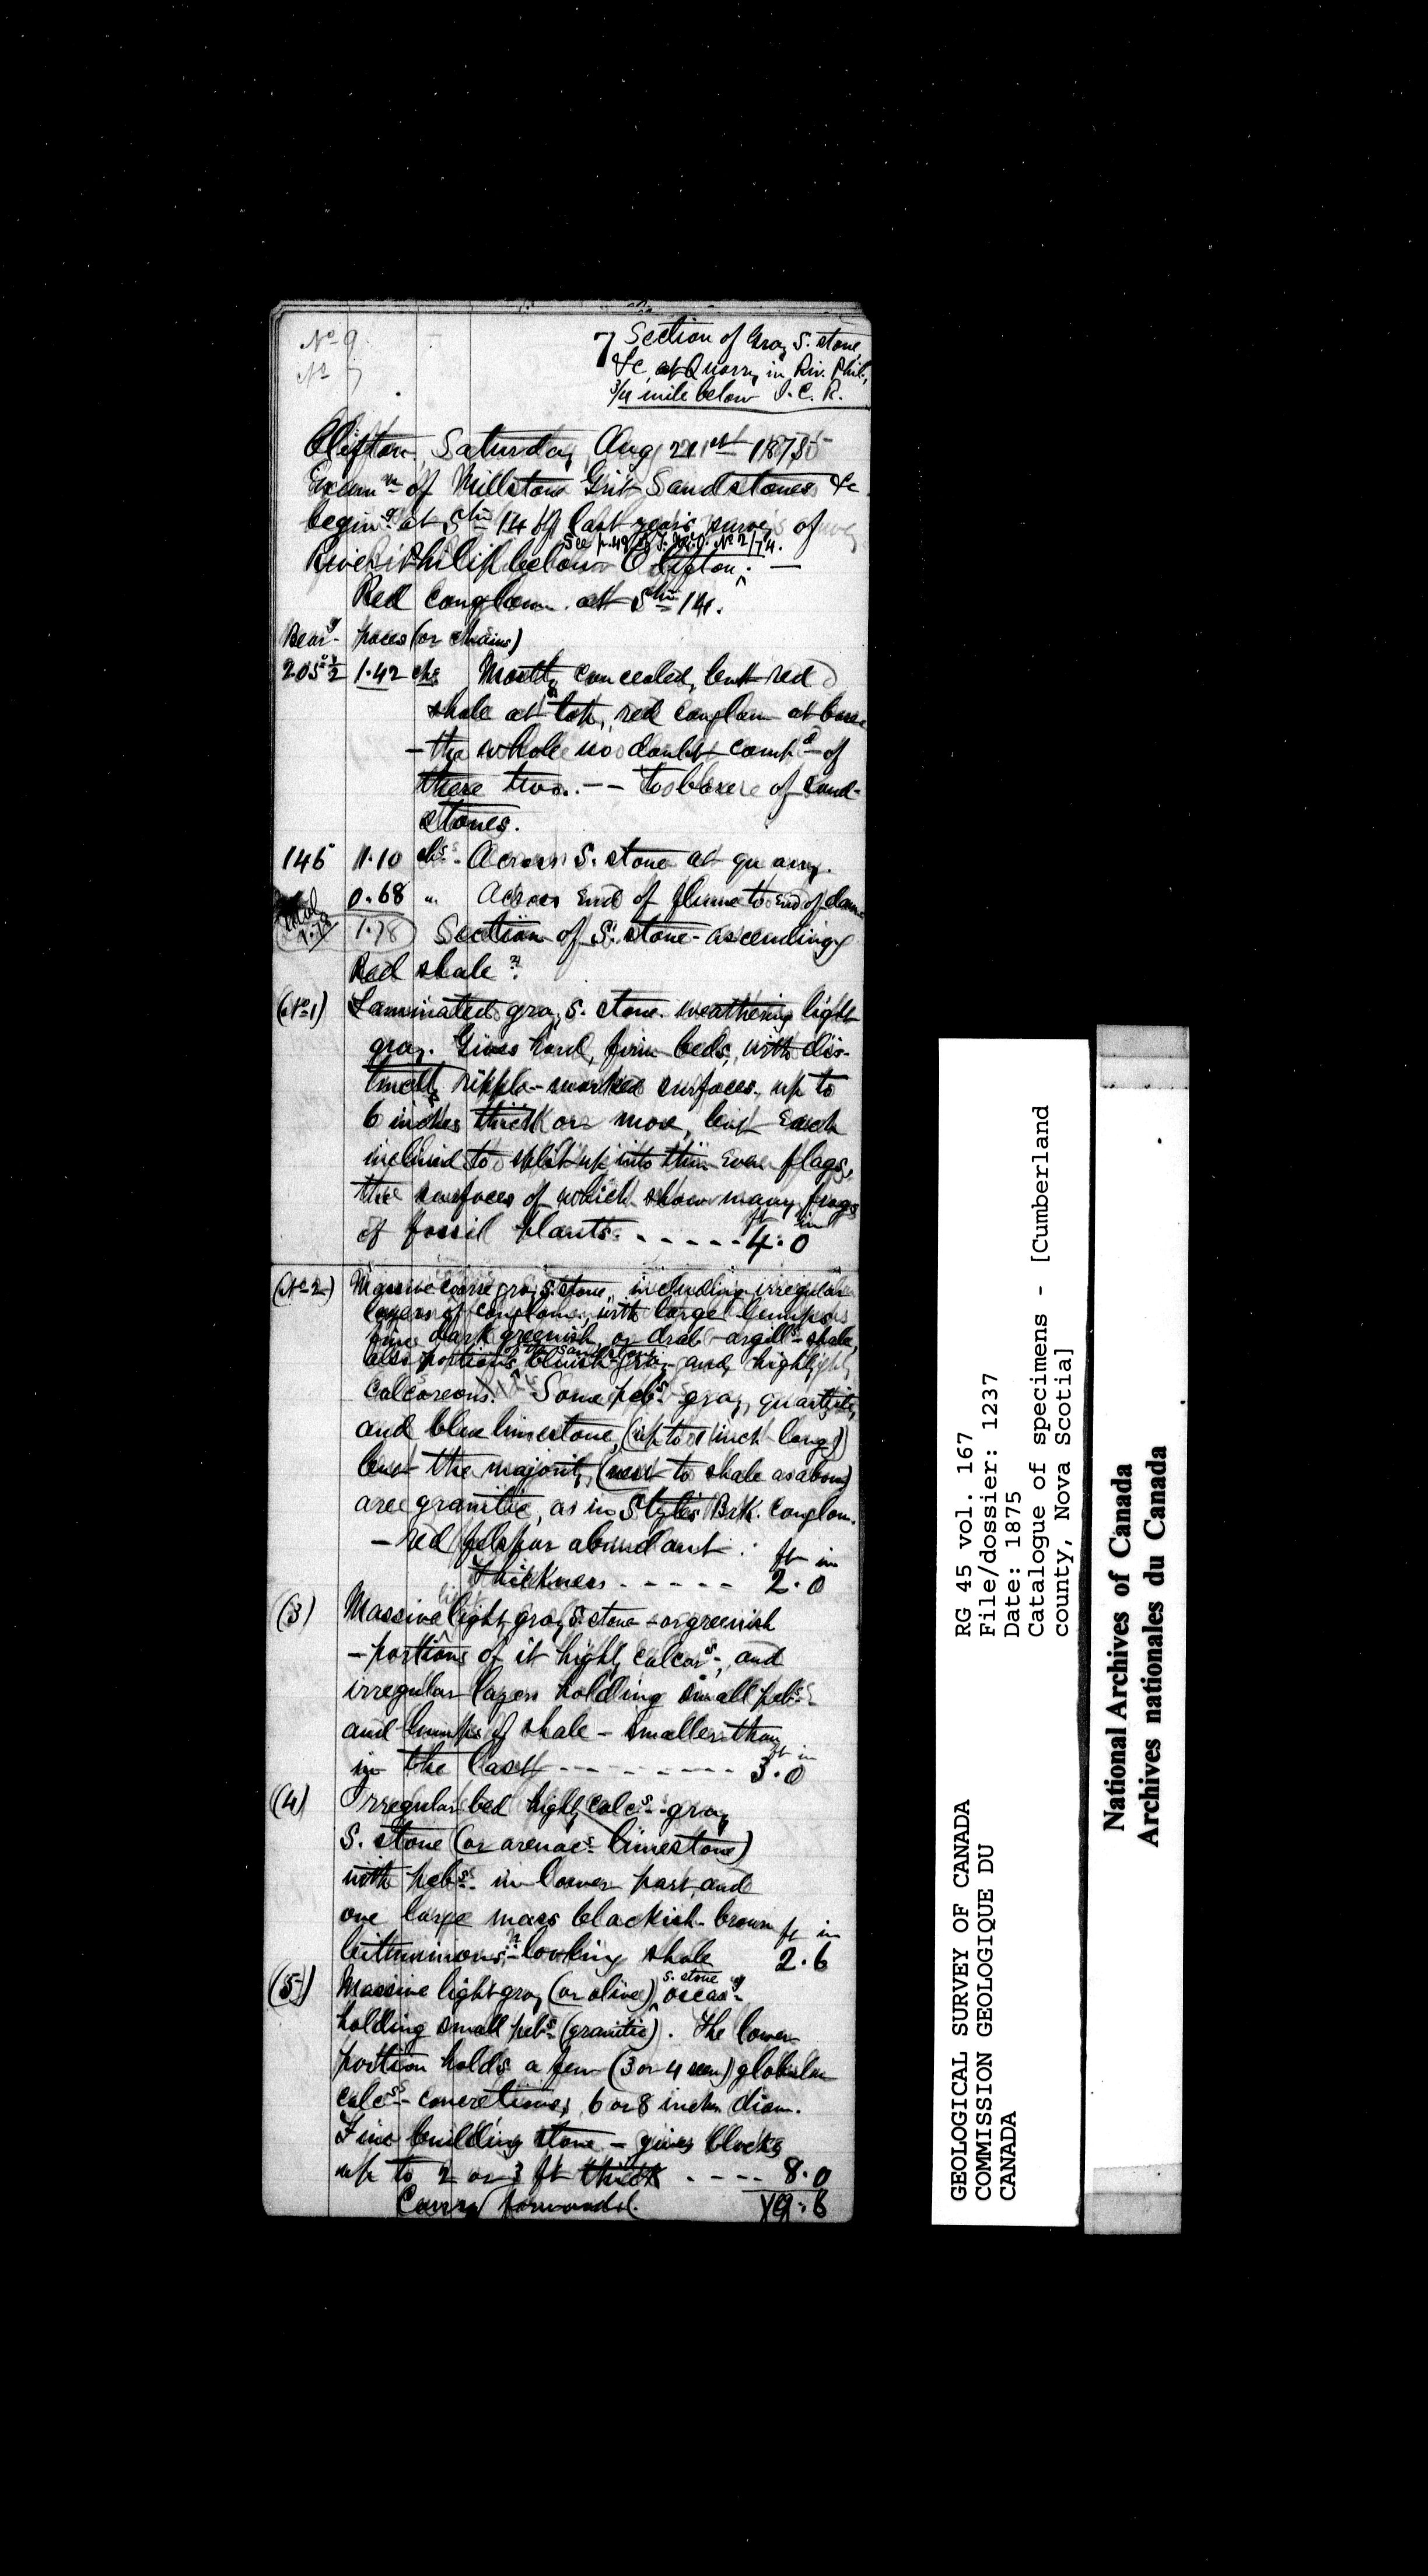 No 9.
No 7
7 Section of Gray S. stone,
&c, at Quarry in Riv. Phil.,
3/4 mile below I. C. R.
Clifton, Saturday, Aug 21st 1875
Examn of Millstone Grit Sandstones &c
beging at Stn 14 of last year's survey of
See p. 49 of No 2/74.
River Philip below Clifton: —
Red conglom. at Stn 14.
Bearg paces (or chains)
205°½ 1.42 chs Mostly concealed, but red
shale at top, red conglom at base
– the whole no doubt compd of
these two. — – to base of sand-
stones.
146 1.10 chs. Across S. stone at quarry.
0.68 " Across end of flume to end of dam
Total 1.78
1.78 Section of S. stone - ascending
Red shale ?
(No 1) Laminated gray S. stone weathering light
gray. Gives hard, firm beds, with dis-
tinctly ripple-marked surfaces, up to
6 inches thick or more, but each
inclined to split up into thin even flags,
the surfaces of which show many frags
of fossil plants - - - - - ft 4. in 0
(No 2) Massive coarse gray S. stone, including irregular
layers of conglom., with large lumps
dark greenish or drab argills shale,
also portions of the sandstone bluish-gray and highly
calcareous. Some pebs gray quartzite,
and blue limestone, (up to 1 inch long)
but the majority (next to shale as above)
are granitic, as in Styles Brk. conglom.
– red felspar abundant. ft in
Thickness - - - - - 2. 0
(3) Massive light gray S. stone – or greenish
– portions of it highly calcars, and
irregular layers holding small pebs
and lumps of shale – smaller than
ft in
in the last - - - - - - - - 3. 0
(4) Irregular bed highly calcs gray
S. stone (or arenacs limestone)
with pebs in lower part, and
one large mass blackish-brown ft in
bituminous-looking ? shale 2. 6
(5) Massive light gray (or olive) S. stone occasy
holding small pebs (granitic). The lower
portion holds a few (3 or 4 seen) globular
calcs concretions, 6 or 8 inches diam.
Fine building stone – gives blocks
up to 2 or 3 ft thick - - - - 8. 0
Carry forward. 19. 6
GEOLOGICAL SURVEY OF CANADA
COMMISSION GEOLOGIQUE DU
CANADA
RG 45 vol. 167
File/dossier: 1237
Date: 1875
Catalogue of specimens - [Cumberland
county, Nova Scotia]
National Archives of Canada
Archives nationales du Canada